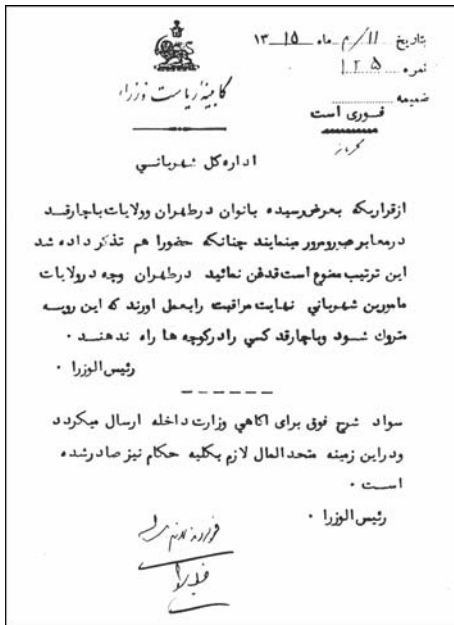 بتاریخ ۱۱/م ماه ۱۳۱۵
نمره ۱۲۵
ضمیمه
فوری است
کابینه ریاست وزراء
اداره کل شهربانی
ازقراریکه بعرض رسیده بانوان درطهران وولایات باچارقد
درمعابر عبورومرور مینمایند چنانکه حضورا هم تذکر داده شد
این ترتیب ممنوع است قدقن نمائید درطهران وچه درولایات
مامورین شهربانی نهایت مراقبت رابعمل اورند که این رویه
متروك شود وباچارقد کسی رادرکوچه ها راه ندهند .
رئیس الوزرا .
سواد شرح فوق برای اکاهی وزارت داخله ارسال میکردد
ودراین زمینه متحدالمال لازم بکلیه حکام نیز صادرشده
است .
رئیس الوزرا .